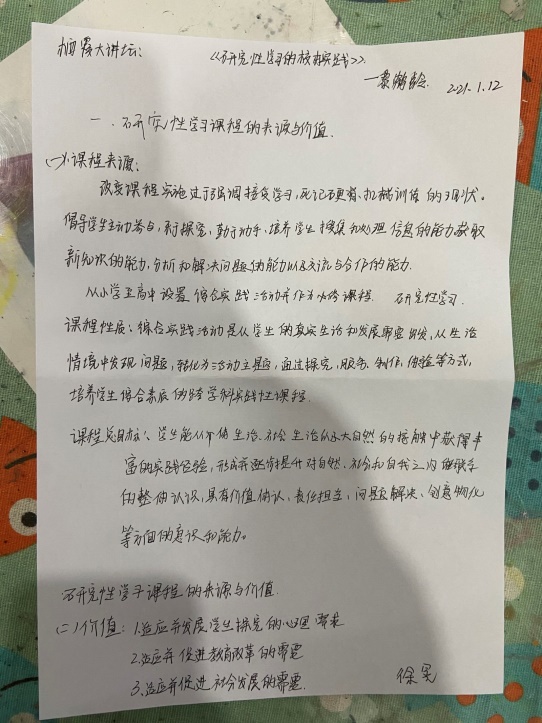 大讲坛：
《研究性学习的校本实践》
2021.1.12
一、研究性学习课程的来源与价值
(一)课程来源：
改变课程实施过于强调接受学习，死记硬背、机械训练的现状。
倡导学生主动参与，乐于探究，勤于动手，培养学生搜集和处理信息的能力获取
新知识的能力，分析和解决问题的能力以及交流与合作的能力.
从小学至高中设置综合实践活动并作为必修课程 研究性学习.
课程性质：综合实践活动是从学生的真实生活和发展需要出发，从生活
情境中发现问题，转化为活动主题，通过探究，服务、制作、体验等方式，
培养学生综合素质的跨学科实践性课程.
课程总目标：学生能从个体生活、社会生活以及大自然的接触中获得丰
富的实践经验，形成并逐步提升对自然、社会和自我之内在联系
的整体认识，具有价值体认，责任担当，问题解决、创意物化
等方面的意识和能力。
研究性学习课程的来源与价值
(二)价值：1.适应并发展学生探究的心理需求
2.适应并促进教育改革的需要
3.适应并促进社会发展的需要.
徐昊